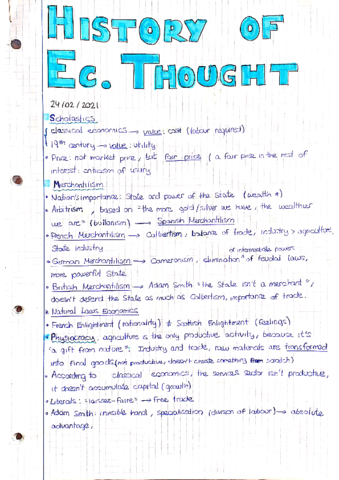 HISTORY OF
EC. THOUGHT
24/02/2021
Scholastics
classical economics → value: cost (labour required)
19th century → value: utility
Price: not market price, but fair price (a fair price in the rest of
interest: criticism of usury
Merchantilism
Nation's importance: State and power of the State (wealth
Arbitrism, based on "the more gold/silver we have, the wealthier
we are" (bullionism) → Spanish Merchantilism
French Merchantilism → Colbertism, balance of trade, industry > agriculture,
State industry
of intermediate powers
German Merchantilism → Cameronism, elimination of feudal laws,
more powerful State
British Merchantilism → Adam Smith "the State isn't a merchant",
doesn't defend the State as much as Colbertism, importance of trade.
Natural Laws Economics
French Enlightment (rationality) ≠ Scottish Enlightment (feelings)
Physiocracy, agriculture is the only productive activity, because it's
"a gift from nature"; Industry and trade, raw materials are transformed
into final goods (not productive, doesn't create something from scratch)
According to classical economics, the services sector isn't productive,
it doesn't accumulate capital (growth)
Literals: "Laissez-Faire" → Free trade
Adam Smith: invisible hand, specialisation (division of labour) → absolute
advantage,